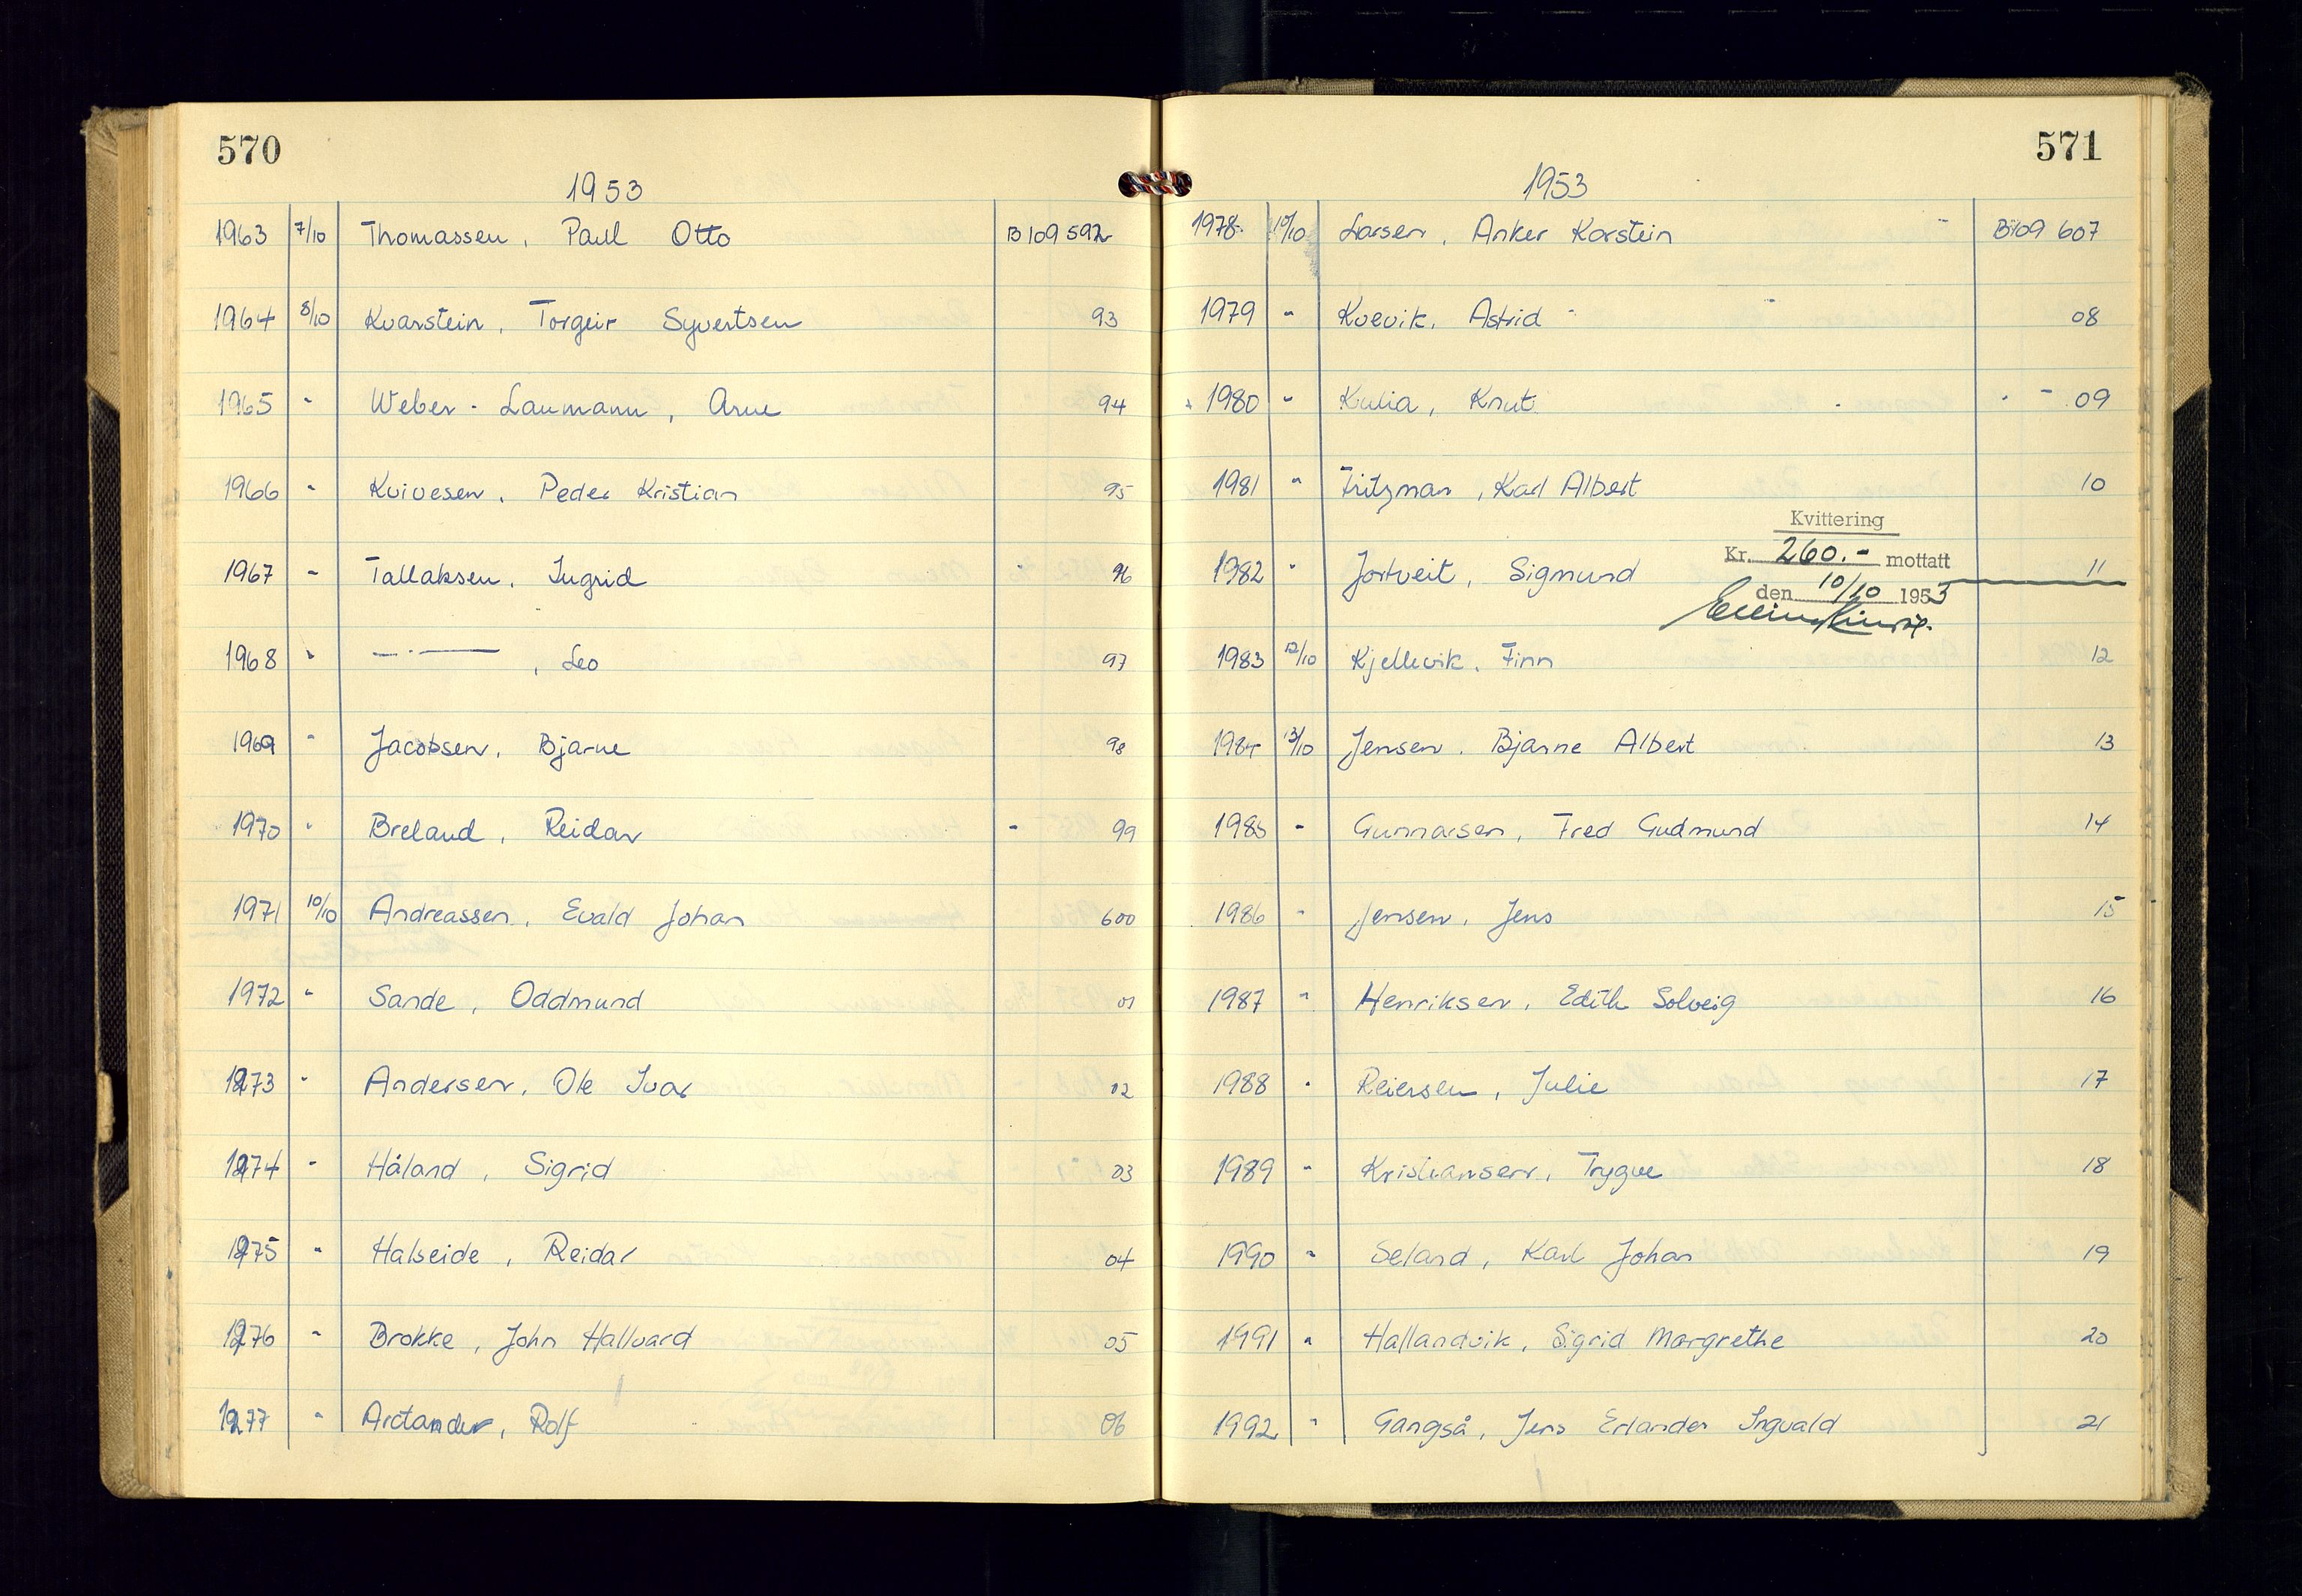 570
1953
1963 7/10 Thomassen, Paul Otto B109592
1964 8/10 Kvarstein, Torgeir Syvertsen 93
1965 " Weber-Laumann, Arne 94
1966 " Kvivesen, Peder Kristian 95
1967 " Tallaksen, Ingrid 96
1968 " —"—, Leo 97
1969 " Jacobsen, Bjarne 98
1970 " Breland, Reidar 99
1971 10/10 Andreassen, Evald Johan 600
1972 " Sande, Oddmund 01
1973 " Andersen, Ole Ivar 02
1974 " Håland, Sigrid 03
1975 " Halseide, Reidar 04
1976 " Brokke, John Hallvard 05
1977 " Arctander, Rolf 06
571
1953
1978 10/10 Larsen, Anker Karstein B109 607
1979 " Kvevik, Astrid 08
1980 " Kulia, Knut 09
1981 " Fritzman, Karl Albert 10
Kvittering
Kr. 260.- mottatt
1982 " Jortveit, Sigmund 11
den 10/10 1953
1983 12/10 Kjellevik, Finn 12
1984 13/10 Jensen, Bjarne Albert 13
1985 " Gunnarsen, Fred Gudmund 14
1986 " Jensen, Jens 15
1987 " Henriksen, Edith Solveig 16
1988 " Reiersen, Julie 17
1989 " Kristiansen, Trygve 18
1990 " Seland, Karl Johan 19
1991 " Hallandvik, Sigrid Margrethe 20
1992 " Gangså, Jens Erlander Ingvald 21